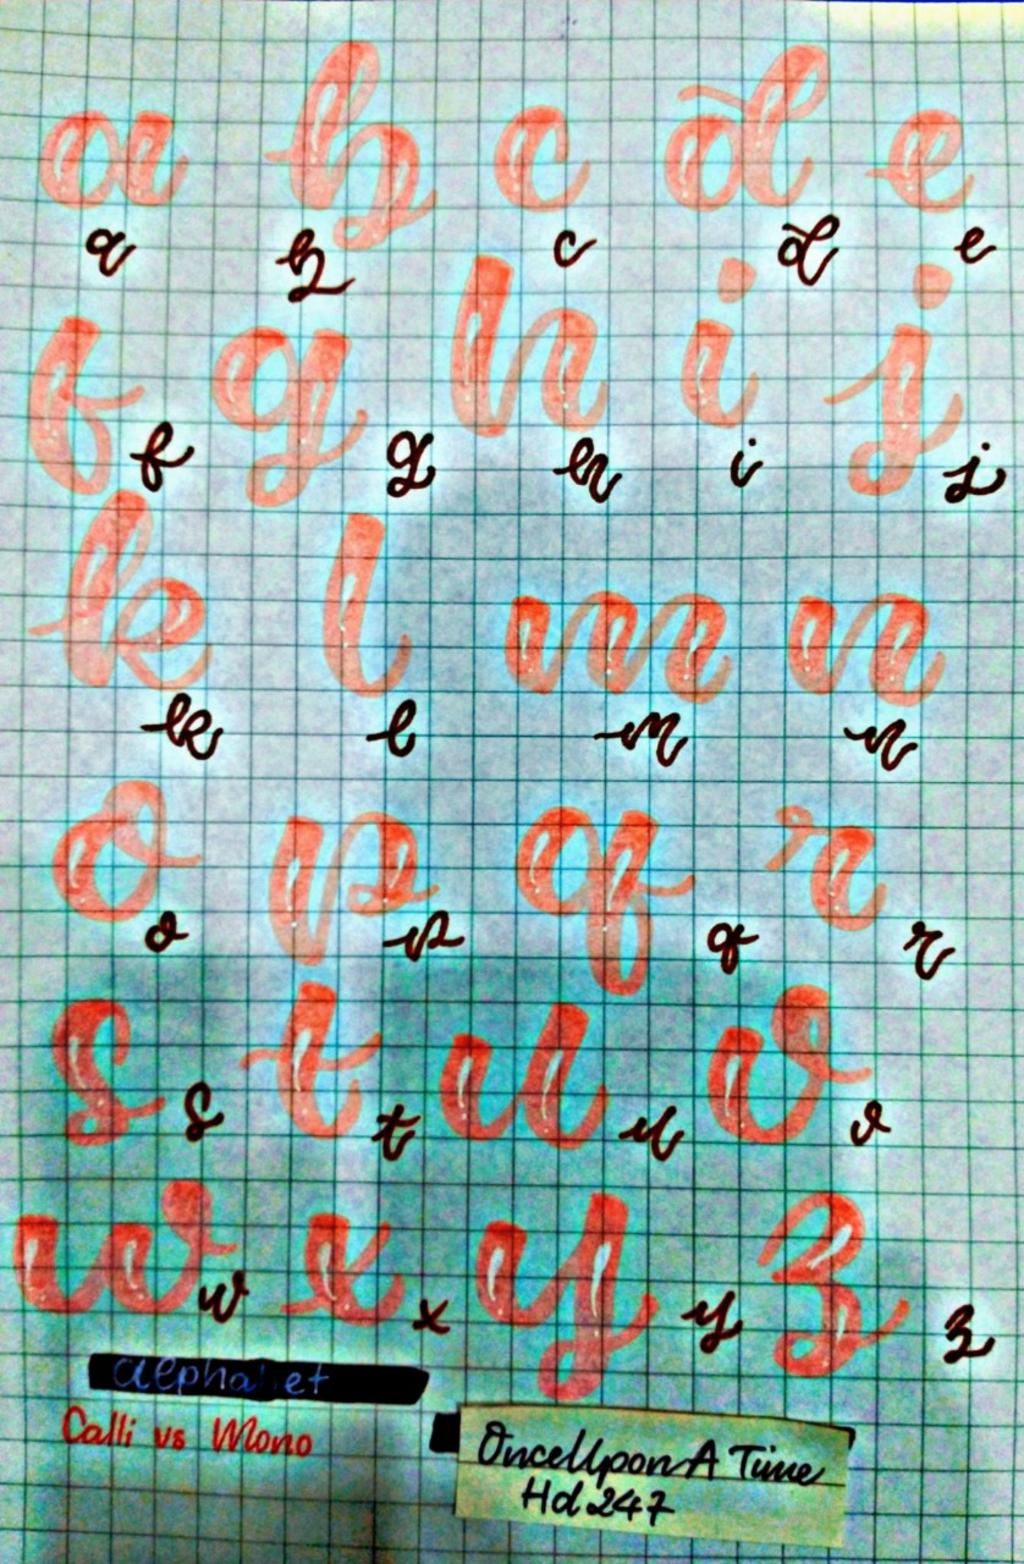 a b c d e
a b c d e
f g h i j
f g h i j
k l m n
k l m n
o p q r
o p q r
s t u v
s t u v
w x y z
w x y z
Alphabet
Calli vs Mono
OnceUpon A Time
Hd 247